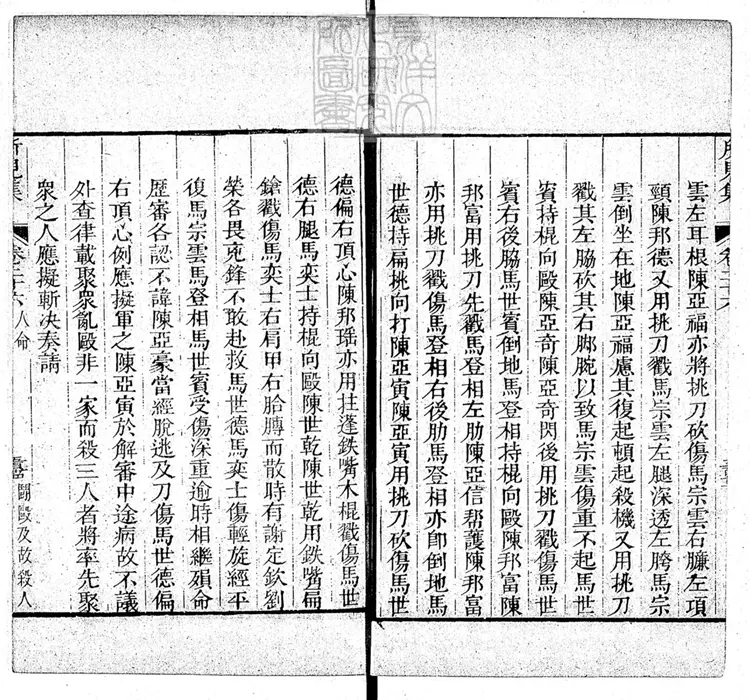 雲左耳根陳亞福亦將挑刀砍傷馬宗雲右臁左項
頸陳邦德又用挑刀戳馬宗雲左腿深透左胯馬宗
雲倒坐在地陳亞福慮其復起頓起殺機又用挑刀
戳其左脇砍其右脚腕以致馬宗雲傷重不起馬世
賓持棍向毆陳亞奇陳亞奇閃後用挑刀戳傷馬世
賓右後脇馬世賓倒地馬登相持棍向毆陳邦富陳
邦富用挑刀先戳馬登相左肋陳亞信帮護陳邦富
亦用挑刀戳傷馬登相右後肋馬登相亦卽倒地馬
世德持扁挑向打陳亞寅陳亞寅用挑刀砍傷馬世
卷二十六
德偏右頂心陳邦瑶亦用拄蓬鉄嘴木棍戳傷馬世
德右腿馬奕士持棍向毆陳世乾陳世乾用鉄嘴扁
鎗戳傷馬奕士右肩甲右胎膊而散時有謝定欽劉
榮各畏兇鋒不敢赴救馬世德馬奕士傷輕旋經平
復馬宗雲馬登相馬世賓受傷深重逾時相繼殞命
歷審各認不諱陳亞豪當經脫逃及刀傷馬世德偏
右頂心例應擬軍之陳亞寅於解審中途病故不議
外查律載聚衆亂毆非一家而殺三人者將率先聚
衆之人應擬斬决奏請
所見集
卷二十六
人命
鬭毆及故殺人